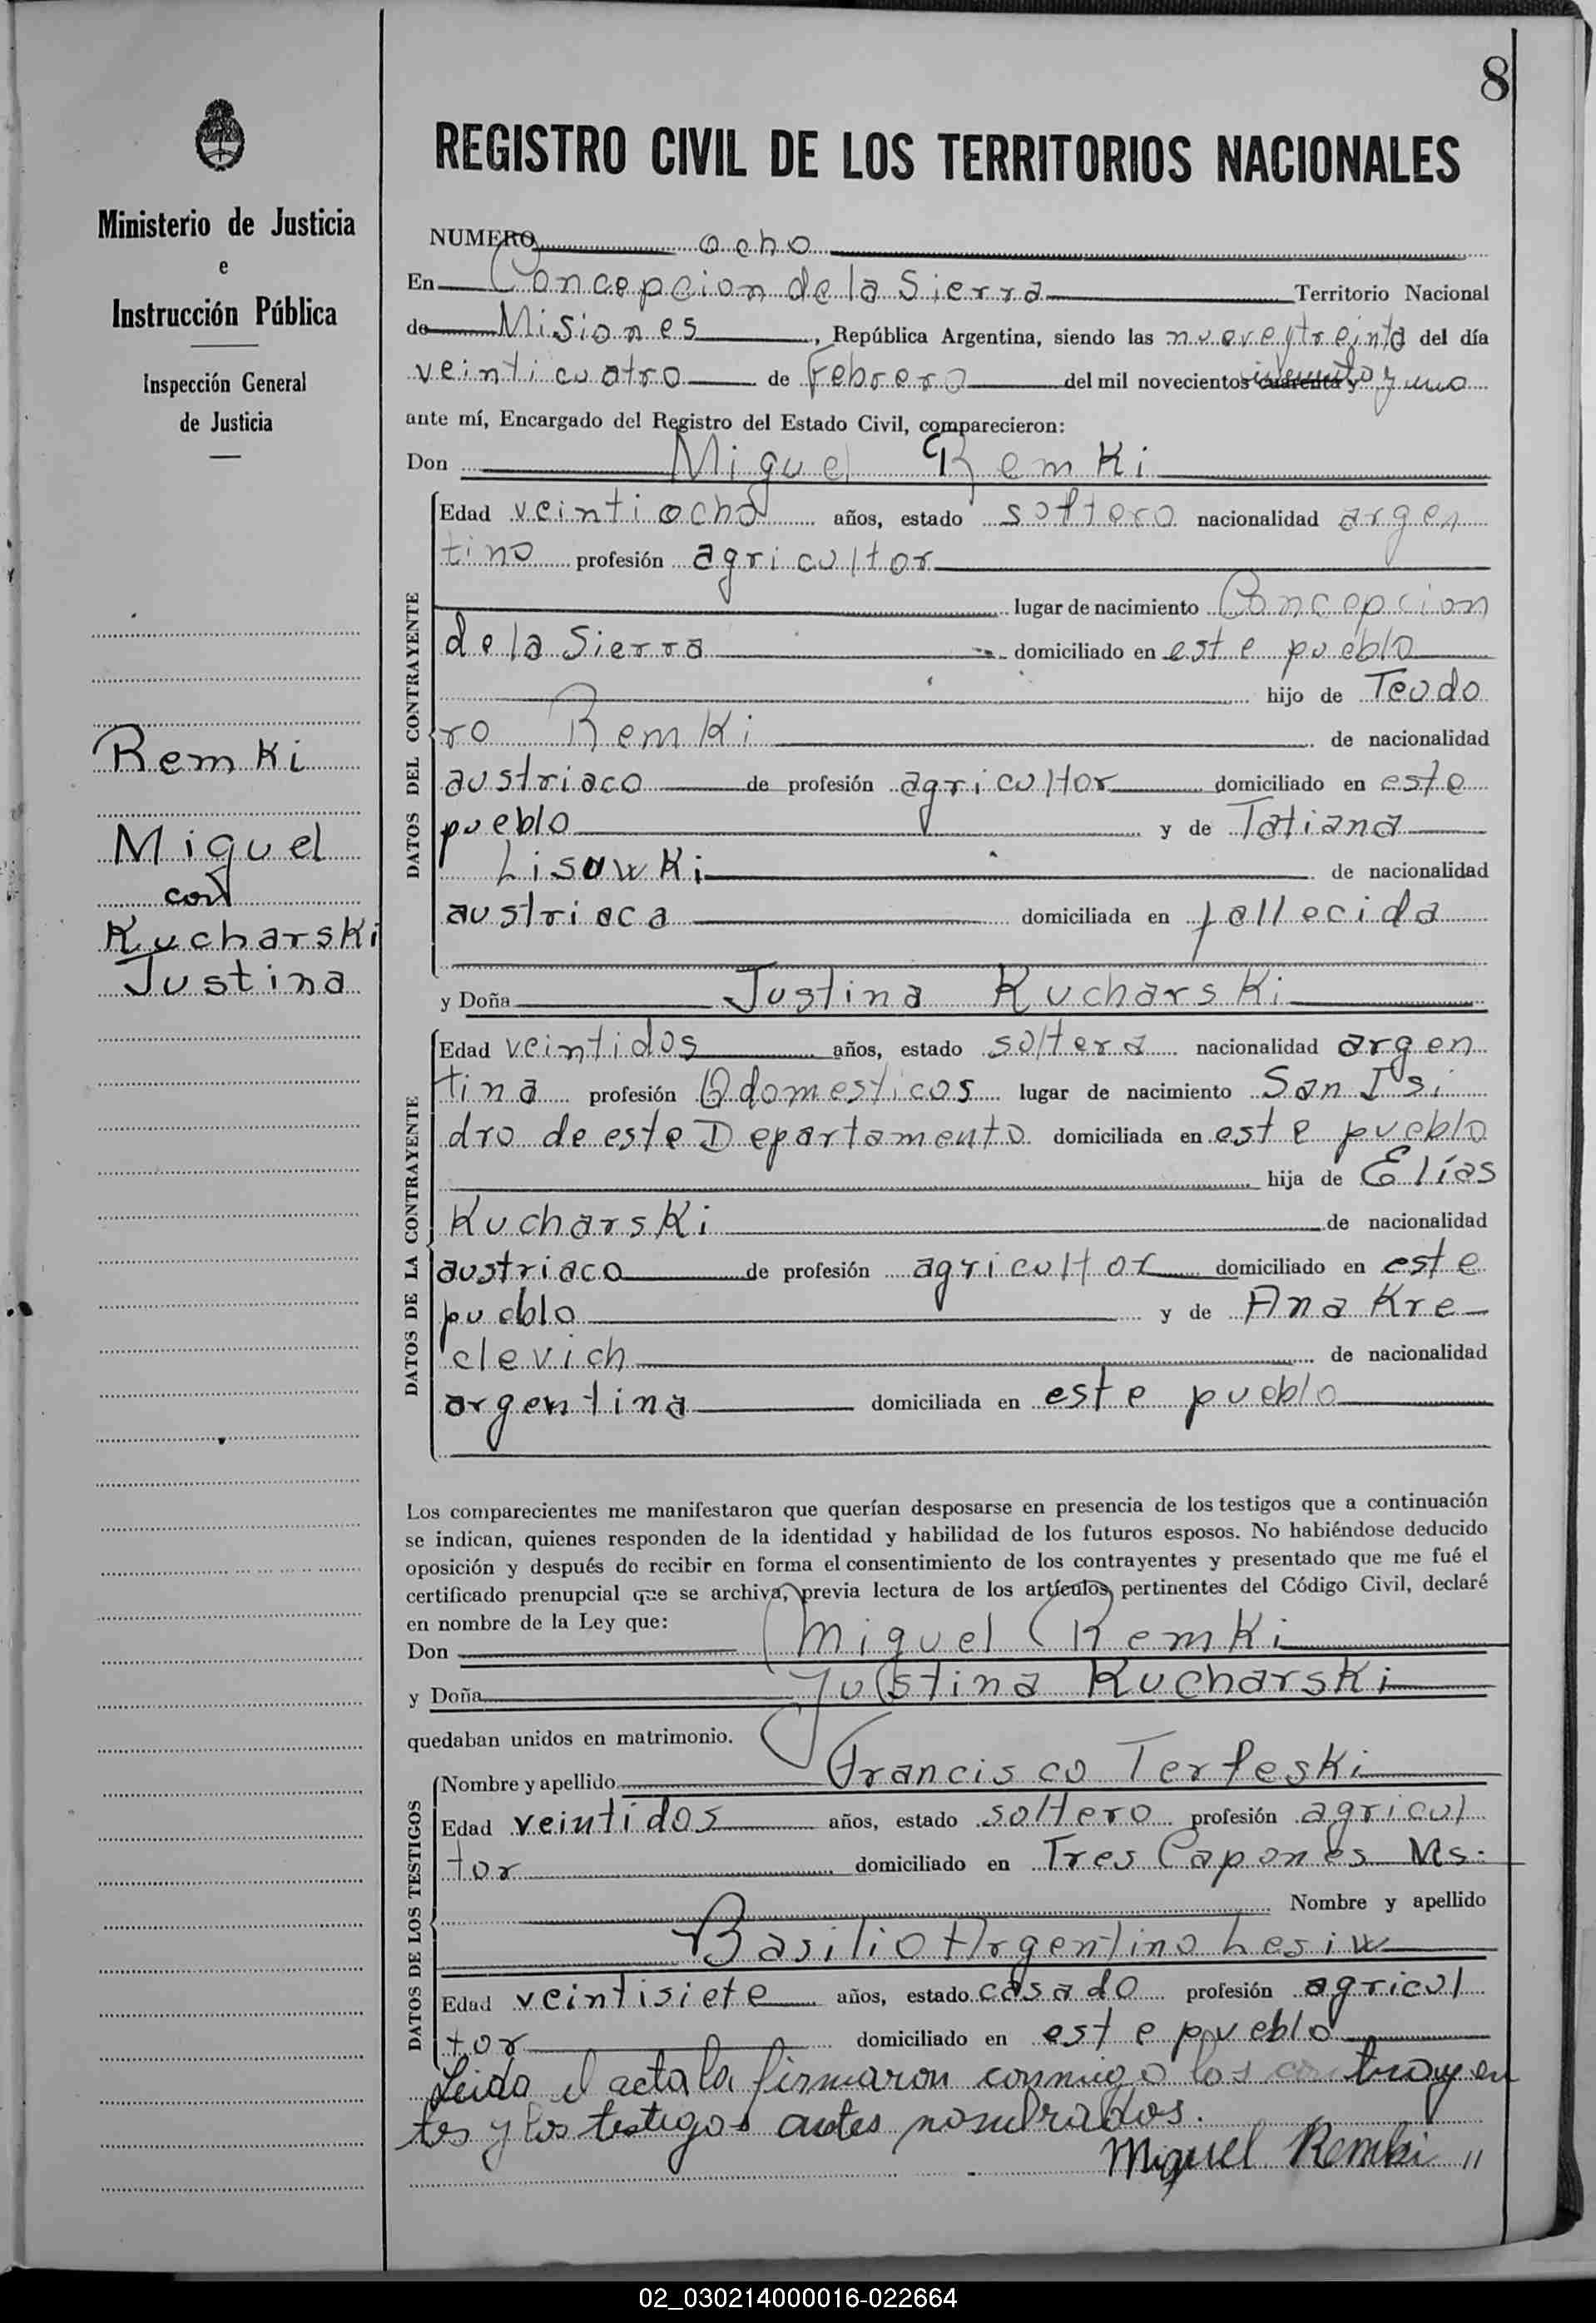 8
Ministerio de Justicia
e
Instrucción Pública
Inspección General
de Justicia
Remki
Miguel
con
Kucharski
Justina
REGISTRO CIVIL DE LOS TERRITORIOS NACIONALES
NUMERO ocho
En Concepcion de la Sierra Territorio Nacional
de Misiones, República Argentina, siendo las nueve y treinta del día
veinticuatro de Febrero del mil novecientos cuarenta y cincuenta y uno
ante mí, Encargado del Registro del Estado Civil, comparecieron:
Don Miguel Remki
DATOS DEL CONTRAYENTE
Edad veintiocho años, estado soltero nacionalidad argen
tino profesión agricultor
lugar de nacimiento Concepcion
de la Sierra domiciliado en este pueblo
hijo de Teodo
ro Remki de nacionalidad
austriaco de profesión agricultor domiciliado en este
pueblo y de Tatiana
Lisowki de nacionalidad
austriaca domiciliada en fallecida
y Doña Justina Kucharski
DATOS DE LA CONTRAYENTE
Edad veintidos años, estado soltera nacionalidad argen
tina profesión Q domesticos lugar de nacimiento San Isi
dro de este Departamento domiciliada en este pueblo
hija de Elías
Kucharski de nacionalidad
austriaco de profesión agricultor domiciliado en este
pueblo y de Ana Kre
clevich de nacionalidad
argentina domiciliada en este pueblo
Los comparecientes me manifestaron que querían desposarse en presencia de los testigos que a continuación
se indican, quienes responden de la identidad y habilidad de los futuros esposos. No habiéndose deducido
oposición y después de recibir en forma el consentimiento de los contrayentes y presentado que me fué el
certificado prenupcial que se archiva, previa lectura de los artículos pertinentes del Código Civil, declaré
en nombre de la Ley que:
Don Miguel Remki
y Doña Justina Kucharski
quedaban unidos en matrimonio.
DATOS DE LOS TESTIGOS
Nombre y apellido Francisco Terleski
Edad veintidos años, estado soltero profesión agricul
tor domiciliado en Tres Capones Ms.
Nombre y apellido
Basilio Argentino Lesiw
Edad veintisiete años, estado casado profesión agricul
tor domiciliado en este pueblo
Leida el acta la firmaron conmigo los contrayen
tes y los testigos antes nombrados.
Miguel Remki "
02_030214000016-022664